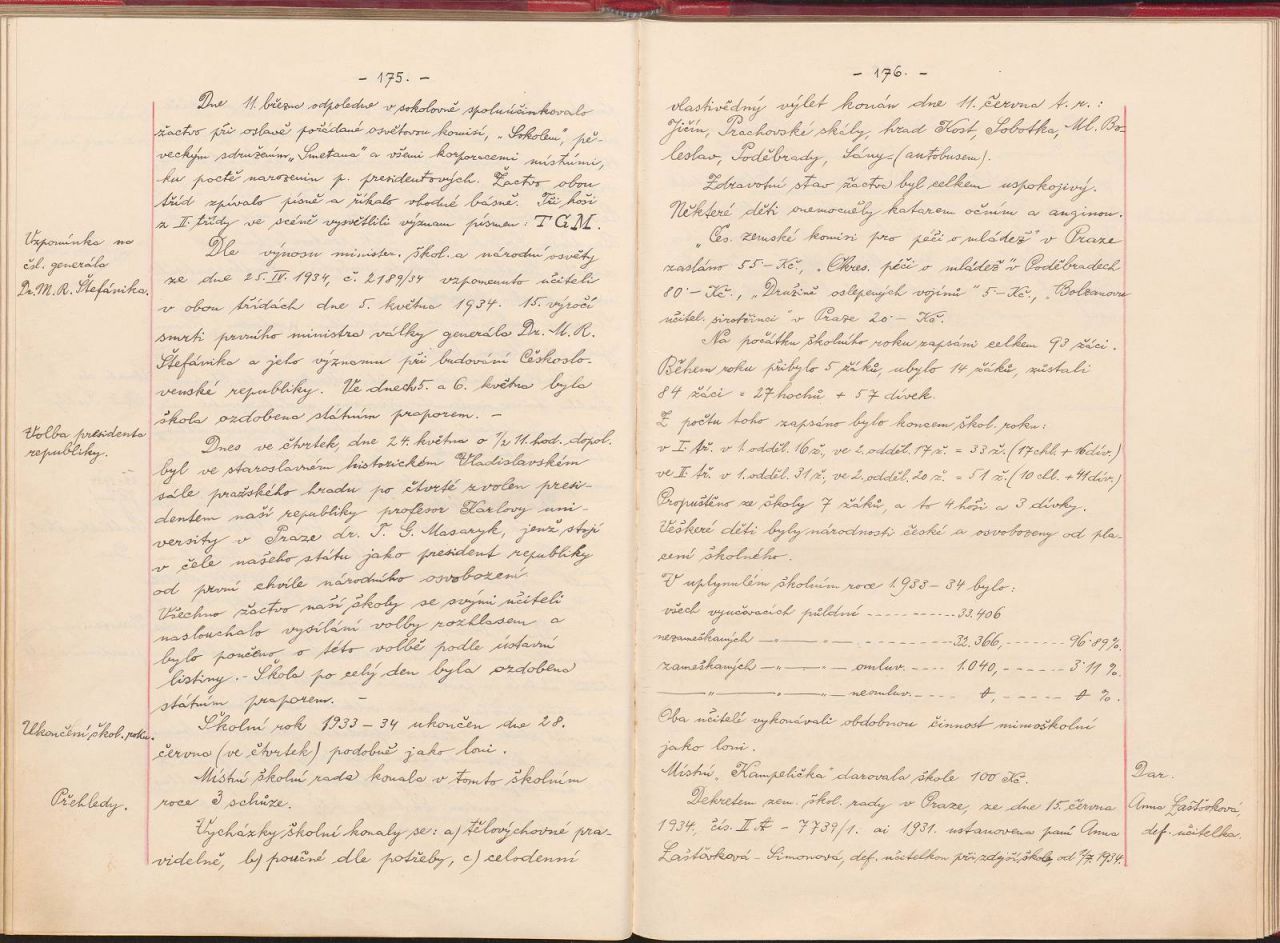 - 175. -
Dne 11. března odpoledne v sokolovně spoluúčinkovalo
žactvo při oslavě pořádané osvětovou komisí, „Sokolem", pě-
veckým sdružením „Smetana" a všemi korporacemi místními,
ku poctě narozenin p. presidentových. Žactvo obou
tříd zpívalo písně a říkalo vhodné básně. Tři hoši
z II. třídy ve scéně vysvětlili význam písmen: TGM.
Vzpomínka na
čsl. generála
Dr. M. R. Štefánika.
Dle výnosu minister. škol. a národní osvěty
ze dne 25. IV. 1934, č. 2189/34 vzpomenuto učiteli
v obou třídách dne 5. května 1934 15. výročí
smrti prvního ministra války generála Dr. M. R.
Štefánika a jeho významu při budování Českoslo-
venské republiky. Ve dnech 5. a 6. května byla
škola ozdobena státním praporem. -
Volba presidenta
republiky.
Dnes ve čtvrtek, dne 24. května o ½ 11. hod. dopol.
byl ve staroslavném historickém Vladislavském
sále pražského hradu po čtvrté zvolen presi-
dentem naší republiky profesor Karlovy uni-
versity v Praze dr. T. G. Masaryk, jenž stojí
v čele našeho státu jako president republiky
od první chvíle národního osvobození
Všechno žactvo naší školy se svými učiteli
naslouchalo vysílání volby rozhlasem a
bylo poučeno o této volbě podle ústavní
listiny. - Škola po celý den byla ozdobena
státním praporem. -
Ukončení škol. roku.
Školní rok 1933-34 ukončen dne 28.
června (ve čtvrtek) podobně jako loni.
Místní školní rada konala v tomto školním
roce 3 schůze.
Přehledy.
Vycházky školní konaly se: a) tělovýchovné pra-
videlně, b) poučné dle potřeby, c) celodenní
- 176. -
vlastivědný výlet konán dne 11. června t. r.:
Jičín, Prachovské skály, hrad Kost, Sobotka, Ml. Bo-
leslav, Poděbrady, Sány - (autobusem).
Zdravotní stav žactva byl celkem uspokojivý.
Některé děti onemocněly katarem očním a anginou.
„Čes. zemské komisi pro péči o mládež" v Praze
zasláno 55 - Kč, „Okres. péči o mládež" v Poděbradech
80 - Kč., „Družině oslepených vojínů" 5 - Kč., „Bolzanovu
učitel. sirotčinci" v Praze 20 - Kč.
Na počátku školního roku zapsáni celkem 93 žáci.
Během roku přibylo 5 žáků, ubylo 14 žáků, zůstali
84 žáci = 27 hochů + 57 dívek.
Z počtu toho zapsáno bylo koncem škol. roku:
v I. tř. v 1. odděl. 16 ž., ve 2. odděl. 17 ž. = 33 ž. (17 chl. + 16 dív.)
ve II. tř. v 1. odděl. 31 ž., ve 2. odděl. 20 ž. = 51 ž. (10 chl. + 41 dív.)
Propuštěno ze školy 7 žáků, a to 4 hoši a 3 dívky.
Veškeré děti byly národnosti české a osvobozeny od pla-
cení školného.
V uplynulém školním roce 1933-34 bylo:
všech vyučovacích půldnů ------------ 33.406
nezameškaných -"- -"- ------------ 32.366, ------- 96·89%.
zameškaných -"- -"- omluv. ---- 1.040, ------- 3·11 %.
-"- -"- -"- neomluv. ---- 0, ---- 0 %.
Oba učitelé vykonávali obdobnou činnost mimoškolní
jako loni.
Dar.
Místní „Kampelička" darovala škole 100 Kč.
Anna Laštovková,
def. učitelka.
Dekretem zem. škol. rady v Praze, ze dne 15. června
1934, čís. II A - 7739/1. ai 1931. ustanovena paní Anna
Laštovková - Šimonová, def. učitelkou při zdejší škole, od 1/7. 1934.